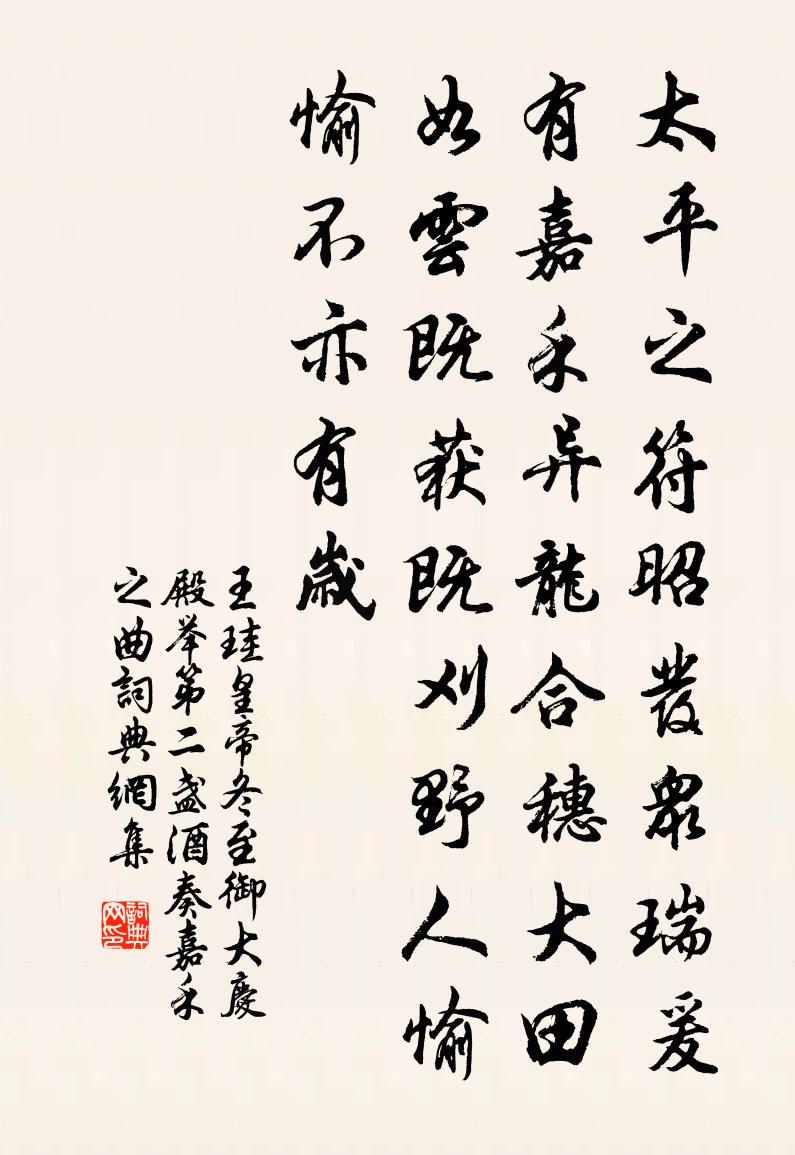 太平之符昭發眾瑞爰
有嘉禾异龍合穗大田
如雲既获既刈野人愉
愉不亦有歲
王珪皇帝冬至御大慶
殿举第二盏酒奏嘉禾
之曲詞典網集
詞典网印